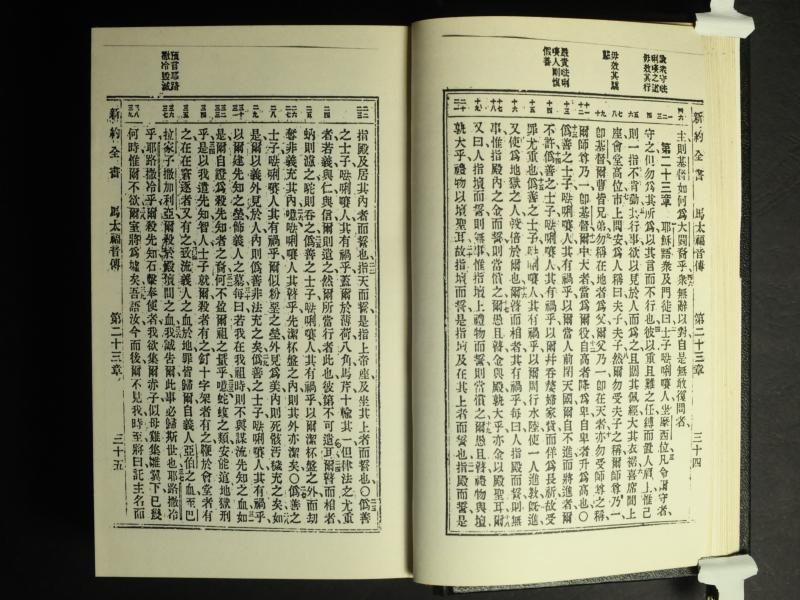 新約全書 馬太福音傳 第二十三章 三十四
毋效其行
主則基督如何爲大闢裔乎衆無辭以對自是無敢復問者
第二十三章 耶穌語衆及門徒曰士子𠵽唎㘔人坐摩西位凡令爾守者
守之但勿爲其所爲以其言而不行也彼以重且難之任縛而置人肩上惟己
則一指不肯動其行事欲以見於人而爲之且闊其佩經大其衣襟喜席間上
座會堂高位市上問安爲人稱曰夫子夫子然爾勿受夫子之稱爾師尊乃一
卽基督爾曹皆兄弟勿稱在地者爲父爾父乃一卽在天者亦勿受師尊之稱
爾師尊乃一卽基督爾中大者當爲爾役自高者降爲卑自卑者升爲高也〇
僞善之士子𠵽唎㘔人其有禍乎以爾當人前閉天國爾自不進而將進者爾
不許僞善之士子𠵽唎㘔人其有禍乎以爾幷吞嫠婦家貲而佯爲長祈故受
罪尤重也僞善之士子𠵽唎㘔人其有禍乎以爾周行水陸使一人進教旣進
又使爲地獄之人浚倍於爾也爾瞽而相者其有禍乎每曰人指殿而誓則無
事惟指殿內之金而誓則當償之爾愚且瞽金與殿孰大乎亦金以殿成聖耳爾
又曰人指壇而誓則無事惟指壇上禮物而誓則當償之爾愚且瞽禮物與壇
孰大乎禮物以壇成聖耳故指壇而誓是指壇及在其上者而誓也指殿而誓是
預言耶路撒冷毀滅
指殿及居其內者而誓也指天而誓是指上帝座及坐其上者而誓也〇僞善
之士子𠵽唎㘔人其有禍乎蓋爾於薄荷八角馬芹十輸其一但律法之尤重
者若義與仁與信爾則遺之然爾所當行者此也彼第不可遺耳爾瞽而相者
蚋則濾之駝則吞之僞善之士子𠵽唎㘔人其有禍乎以爾潔杯盤之外而刼
奪非義充其內噫𠵽唎㘔人其瞽乎先潔杯盤之內則其外亦潔矣〇僞善之
士子𠵽唎㘔人其有禍乎爾似粉堊之塋外見爲美內則死骸污穢充之矣如
是爾以義外見於人內則僞善非法充之矣僞善之士子𠵽唎㘔人其有禍乎
以爾建先知之塋飾義人之墓每曰若我在我祖時則不與謀流先知之血如
是爾自證爲殺先知者之裔何不盈爾祖之量乎噫蛇蝮之類安能逭地獄刑
乎是以我遣先知智人士子就爾殺者有之釘十字架者有之鞭於會堂者有
之在在窘逐者又有之致流義人之血於地罪皆歸爾自義人亞伯之血至巴
拉家子撒加利亞爾殺於殿壇間之血我誠告爾此事必歸斯世也耶路撒冷
乎耶路撒冷乎爾殺先知石擊奉使者我欲集爾赤子似母雞集雛翼下已幾
何時惟爾不欲爾室將爲墟矣吾語汝今而後爾不見我時至將曰託主名而
新約全書 馬太福音傳 第二十三章 三十五